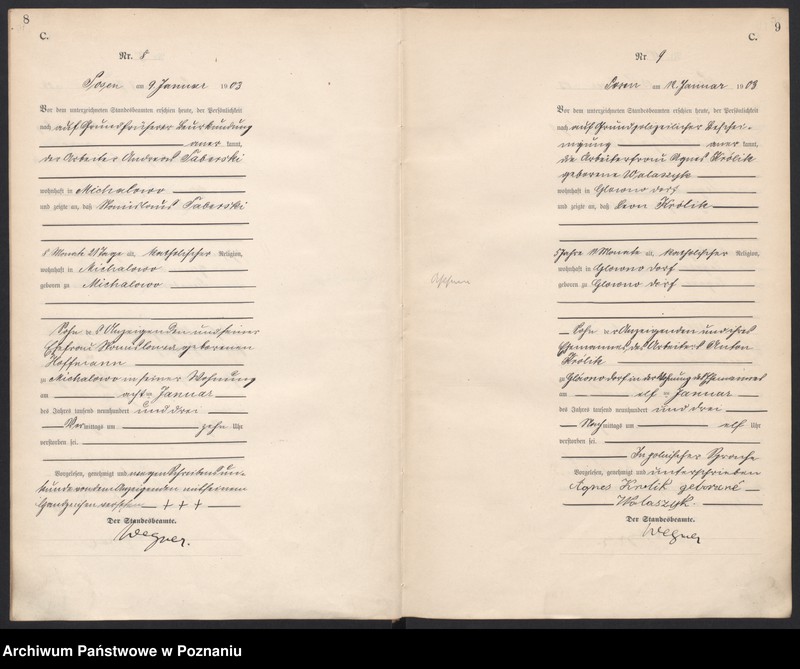 8
C.
Nr. 8
Posen am 9. Januar 1903
Vor dem unterzeichneten Standesbeamten erschien heute, der Persönlichkeit
nach auf Grund früherer Beurkundung
aner kannt,
der Arbeiter Andreas Taberski
wohnhaft in Michalowo
und zeigte an, daß Stanislaus Taberski
8 Monate 28 Tage alt, katholischer Religion,
wohnhaft in Michalowo
geboren zu Michalowo
Sohn des Anzeigenden und seiner
Ehefrau Stanislawa geborenen
Hoffmann
zu Michalowo in seiner Wohnung
am acht ten Januar
des Jahres tausend neunhundert und drei
Vor mittags um zehn Uhr
verstorben sei.
Vorgelesen, genehmigt und wegen Schreibensun-
kunde von dem Anzeigenden mit seinem
Handzeichen versehen + + +
Der Standesbeamte.
Wegner.
9
C.
Nr. 9
Posen am 12. Januar 1903
Vor dem unterzeichneten Standesbeamten erschien heute, der Persönlichkeit
nach auf Grund polizeilicher Beschei-
nigung aner kannt,
die Arbeiterfrau Agnes Krolik
geborene Walaszyk
wohnhaft in Glowno dorf
und zeigte an, daß Leon Krolik
5 Jahre 11 Monate alt, katholischer Religion,
wohnhaft in Glowno dorf
geboren zu Glowno dorf
Sohn der Anzeigenden und ihres
Ehemannes, des Arbeiters Anton
Krolik
zu Glowno dorf in der Wohnung des Ehemannes
am elf ten Januar
des Jahres tausend neunhundert und drei
Nach mittags um elf Uhr
verstorben sei.
In polnischer Sprache
Vorgelesen, genehmigt und unterschrieben
Agnes Krolik geborene
Walaszyk.
Der Standesbeamte.
Wegner
Archiwum Państwowe w Poznaniu